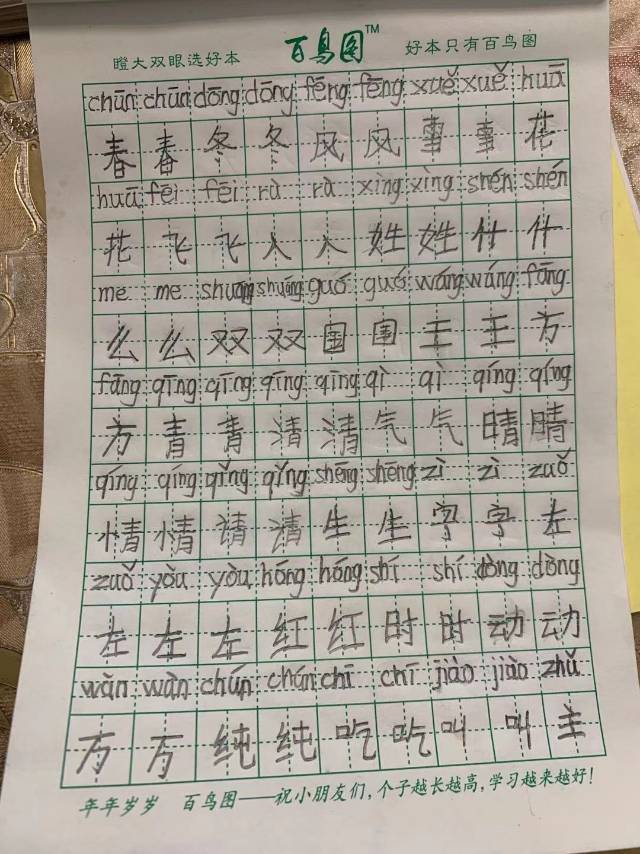 瞪大双眼选好本 百鸟图™ 好本只有百鸟图
chūn chūn dōng dōng fēng fēng xuě xuě huā
春 春 冬 冬 风 风 花
huā fēi fēi rù rù xìng xìng shén shén
花 飞 飞 入 入 姓 姓 什 什
me me shuāng shuāng guó guó wáng wáng fāng
么 么 双 双 国 国 王 王 方
fāng qīng qīng qīng qīng qì qì qíng qíng
方 青 青 清 清 气 气 晴 晴
qíng qíng qǐng qǐng shēng shēng zì zì zuǒ
情 情 请 请 生 生 字 字 左
zuǒ yòu yòu hóng hóng shí shí dòng dòng
左 左 左 红 红 时 时 动 动
wàn wàn chún chún chī chī jiào jiào zhǔ
万 万 纯 纯 吃 吃 叫 叫 主
年年岁岁 百鸟图——祝小朋友们，个子越长越高，学习越来越好！